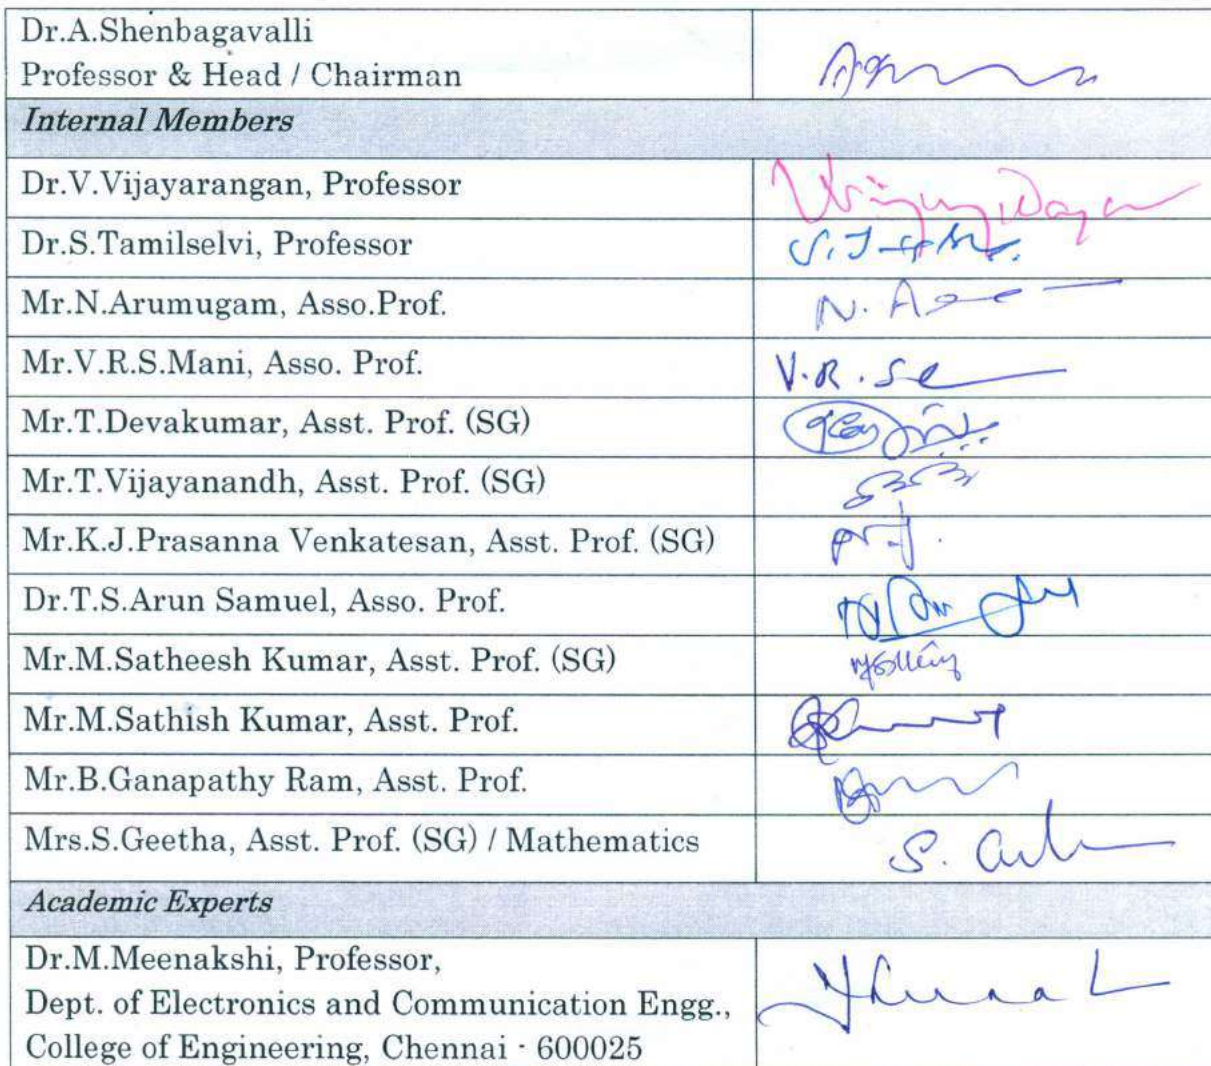 Dr.A.Shenbagavalli
Professor & Head / Chairman
Internal Members
Dr.V.Vijayarangan, Professor
Dr.S.Tamilselvi, Professor
Mr.N.Arumugam, Asso.Prof.
N. A
Mr.V.R.S.Mani, Asso. Prof.
V.R.S
Mr.T.Devakumar, Asst. Prof. (SG)
Mr.T.Vijayanandh, Asst. Prof. (SG)
Mr.K.J.Prasanna Venkatesan, Asst. Prof. (SG)
Dr.T.S.Arun Samuel, Asso. Prof.
Mr.M.Satheesh Kumar, Asst. Prof. (SG)
Mr.M.Sathish Kumar, Asst. Prof.
Mr.B.Ganapathy Ram, Asst. Prof.
Mrs.S.Geetha, Asst. Prof. (SG) / Mathematics
S.
Academic Experts
Dr.M.Meenakshi, Professor,
Dept. of Electronics and Communication Engg.,
College of Engineering, Chennai - 600025